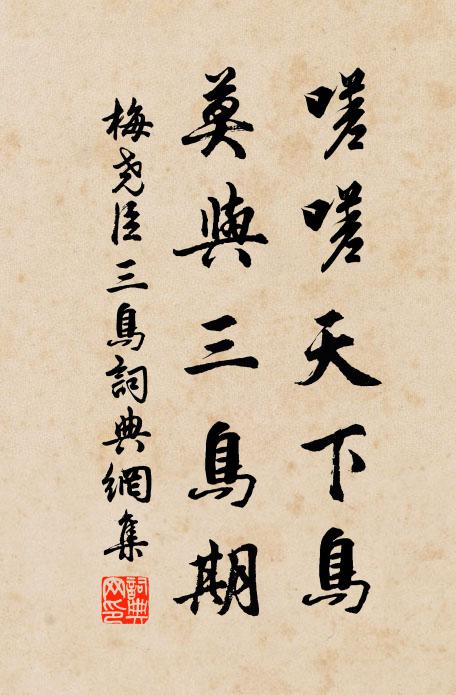 嗟嗟天下鳥
莫與三鳥期
梅堯臣三鳥詞典網集
詞典網印